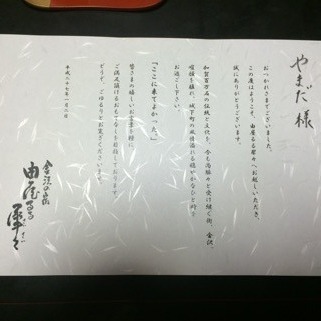 やまだ 様
おつかれさまでございました。
この度はようこそ、由屋るる犀々へお越しいただき、
誠にありがとうございます。
加賀百万石の伝統と文化を、今も脈々と受け継ぐ街、金沢。
喧騒を離れ、城下町の風情溢れる穏やかなひと時を
お過し下さい。
「ここに来てよかった。」
皆さまの嬉しいお言葉を糧に、
ご満足頂けるおもてなしを目指しております。
どうぞ、ごゆるりとお寛ぎくださいませ。
平成二十七年一月二日
金沢の宿
由屋るる犀々